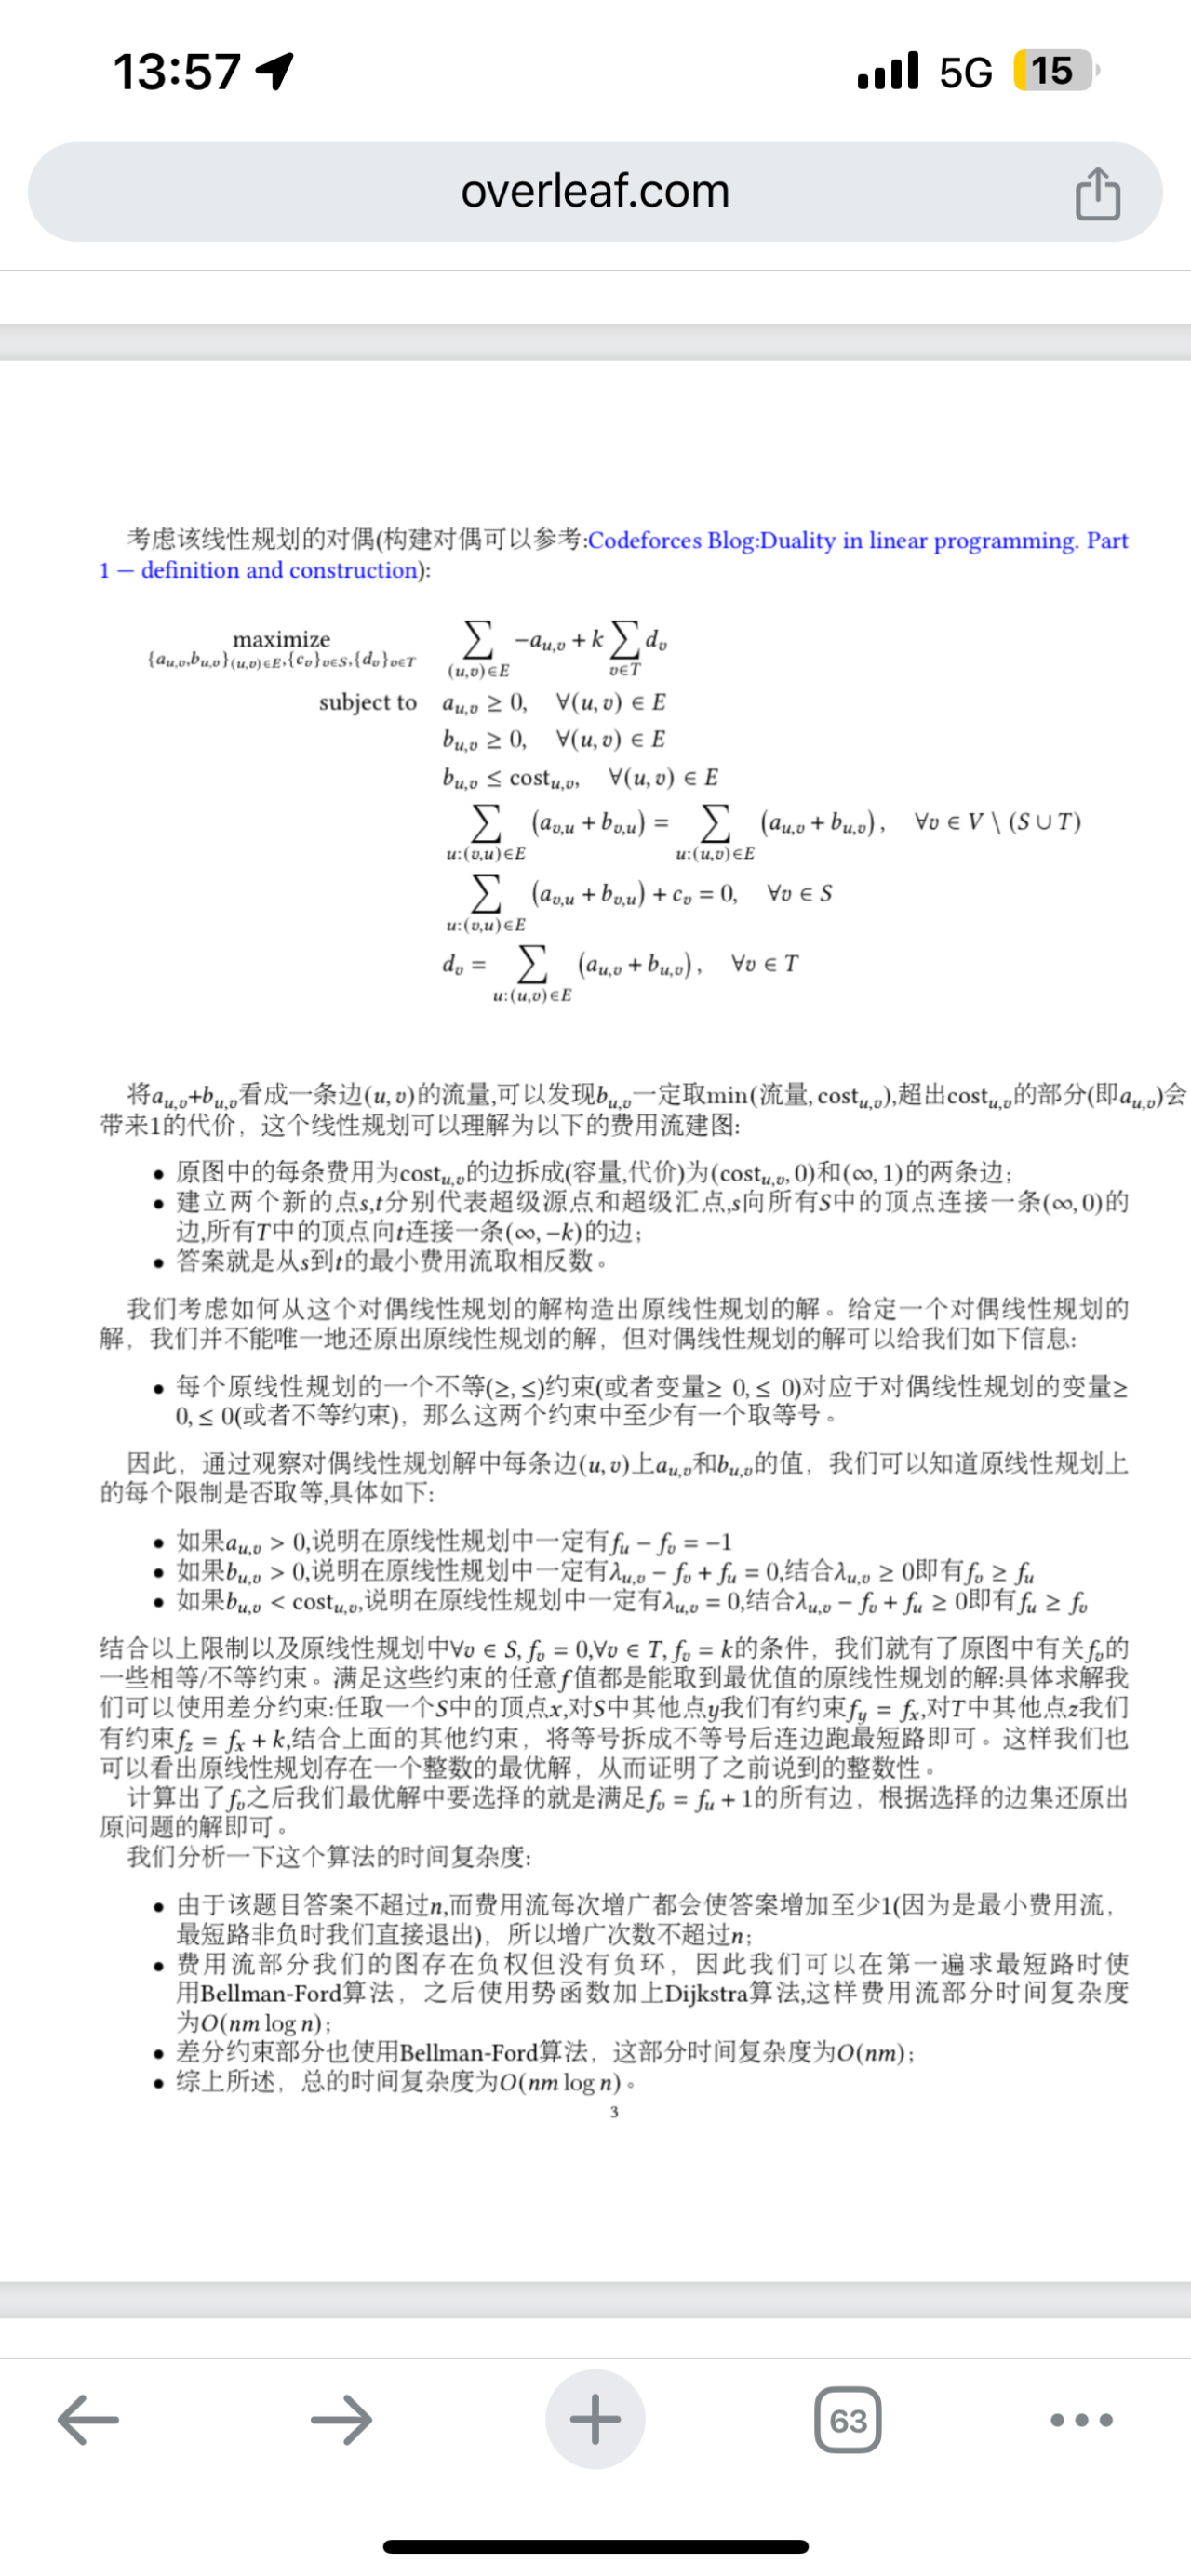 13:57
5G 15
overleaf.com
考虑该线性规划的对偶(构建对偶可以参考:Codeforces Blog:Duality in linear programming. Part
1 — definition and construction):
maximize_{{a_{u,v},b_{u,v}}_{(u,v)∈E},{c_v}_{v∈S},{d_v}_{v∈T}} ∑_{(u,v)∈E} −a_{u,v} + k ∑_{v∈T} d_v
subject to a_{u,v} ≥ 0, ∀(u, v) ∈ E
b_{u,v} ≥ 0, ∀(u, v) ∈ E
b_{u,v} ≤ cost_{u,v}, ∀(u, v) ∈ E
∑_{u:(v,u)∈E} (a_{v,u} + b_{v,u}) = ∑_{u:(u,v)∈E} (a_{u,v} + b_{u,v}), ∀v ∈ V \ (S ∪ T)
∑_{u:(v,u)∈E} (a_{v,u} + b_{v,u}) + c_v = 0, ∀v ∈ S
d_v = ∑_{u:(u,v)∈E} (a_{u,v} + b_{u,v}), ∀v ∈ T
将a_{u,v}+b_{u,v}看成一条边(u, v)的流量,可以发现b_{u,v}一定取min(流量, cost_{u,v}),超出cost_{u,v}的部分(即a_{u,v})会
带来1的代价，这个线性规划可以理解为以下的费用流建图:
• 原图中的每条费用为cost_{u,v}的边拆成(容量,代价)为(cost_{u,v}, 0)和(∞, 1)的两条边;
• 建立两个新的点s,t分别代表超级源点和超级汇点,s向所有S中的顶点连接一条(∞, 0)的
边,所有T中的顶点向t连接一条(∞, −k)的边;
• 答案就是从s到t的最小费用流取相反数。
我们考虑如何从这个对偶线性规划的解构造出原线性规划的解。给定一个对偶线性规划的
解，我们并不能唯一地还原出原线性规划的解，但对偶线性规划的解可以给我们如下信息:
• 每个原线性规划的一个不等(≥, ≤)约束(或者变量≥ 0, ≤ 0)对应于对偶线性规划的变量≥
0, ≤ 0(或者不等约束)，那么这两个约束中至少有一个取等号。
因此，通过观察对偶线性规划解中每条边(u, v)上a_{u,v}和b_{u,v}的值，我们可以知道原线性规划上
的每个限制是否取等,具体如下:
• 如果a_{u,v} > 0,说明在原线性规划中一定有f_u − f_v = −1
• 如果b_{u,v} > 0,说明在原线性规划中一定有λ_{u,v} − f_v + f_u = 0,结合λ_{u,v} ≥ 0即有f_v ≥ f_u
• 如果b_{u,v} < cost_{u,v},说明在原线性规划中一定有λ_{u,v} = 0,结合λ_{u,v} − f_v + f_u ≥ 0即有f_u ≥ f_v
结合以上限制以及原线性规划中∀v ∈ S, f_v = 0,∀v ∈ T, f_v = k的条件，我们就有了原图中有关f_v的
一些相等/不等约束。满足这些约束的任意f值都是能取到最优值的原线性规划的解:具体求解我
们可以使用差分约束:任取一个S中的顶点x,对S中其他点y我们有约束f_y = f_x,对T中其他点z我们
有约束f_z = f_x + k,结合上面的其他约束，将等号拆成不等号后连边跑最短路即可。这样我们也
可以看出原线性规划存在一个整数的最优解，从而证明了之前说到的整数性。
计算出了f_v之后我们最优解中要选择的就是满足f_v = f_u + 1的所有边，根据选择的边集还原出
原问题的解即可。
我们分析一下这个算法的时间复杂度:
• 由于该题目答案不超过n,而费用流每次增广都会使答案增加至少1(因为是最小费用流，
最短路非负时我们直接退出)，所以增广次数不超过n;
• 费用流部分我们的图存在负权但没有负环，因此我们可以在第一遍求最短路时使
用Bellman-Ford算法，之后使用势函数加上Dijkstra算法,这样费用流部分时间复杂度
为O(nm log n);
• 差分约束部分也使用Bellman-Ford算法，这部分时间复杂度为O(nm);
• 综上所述，总的时间复杂度为O(nm log n)。
3
63